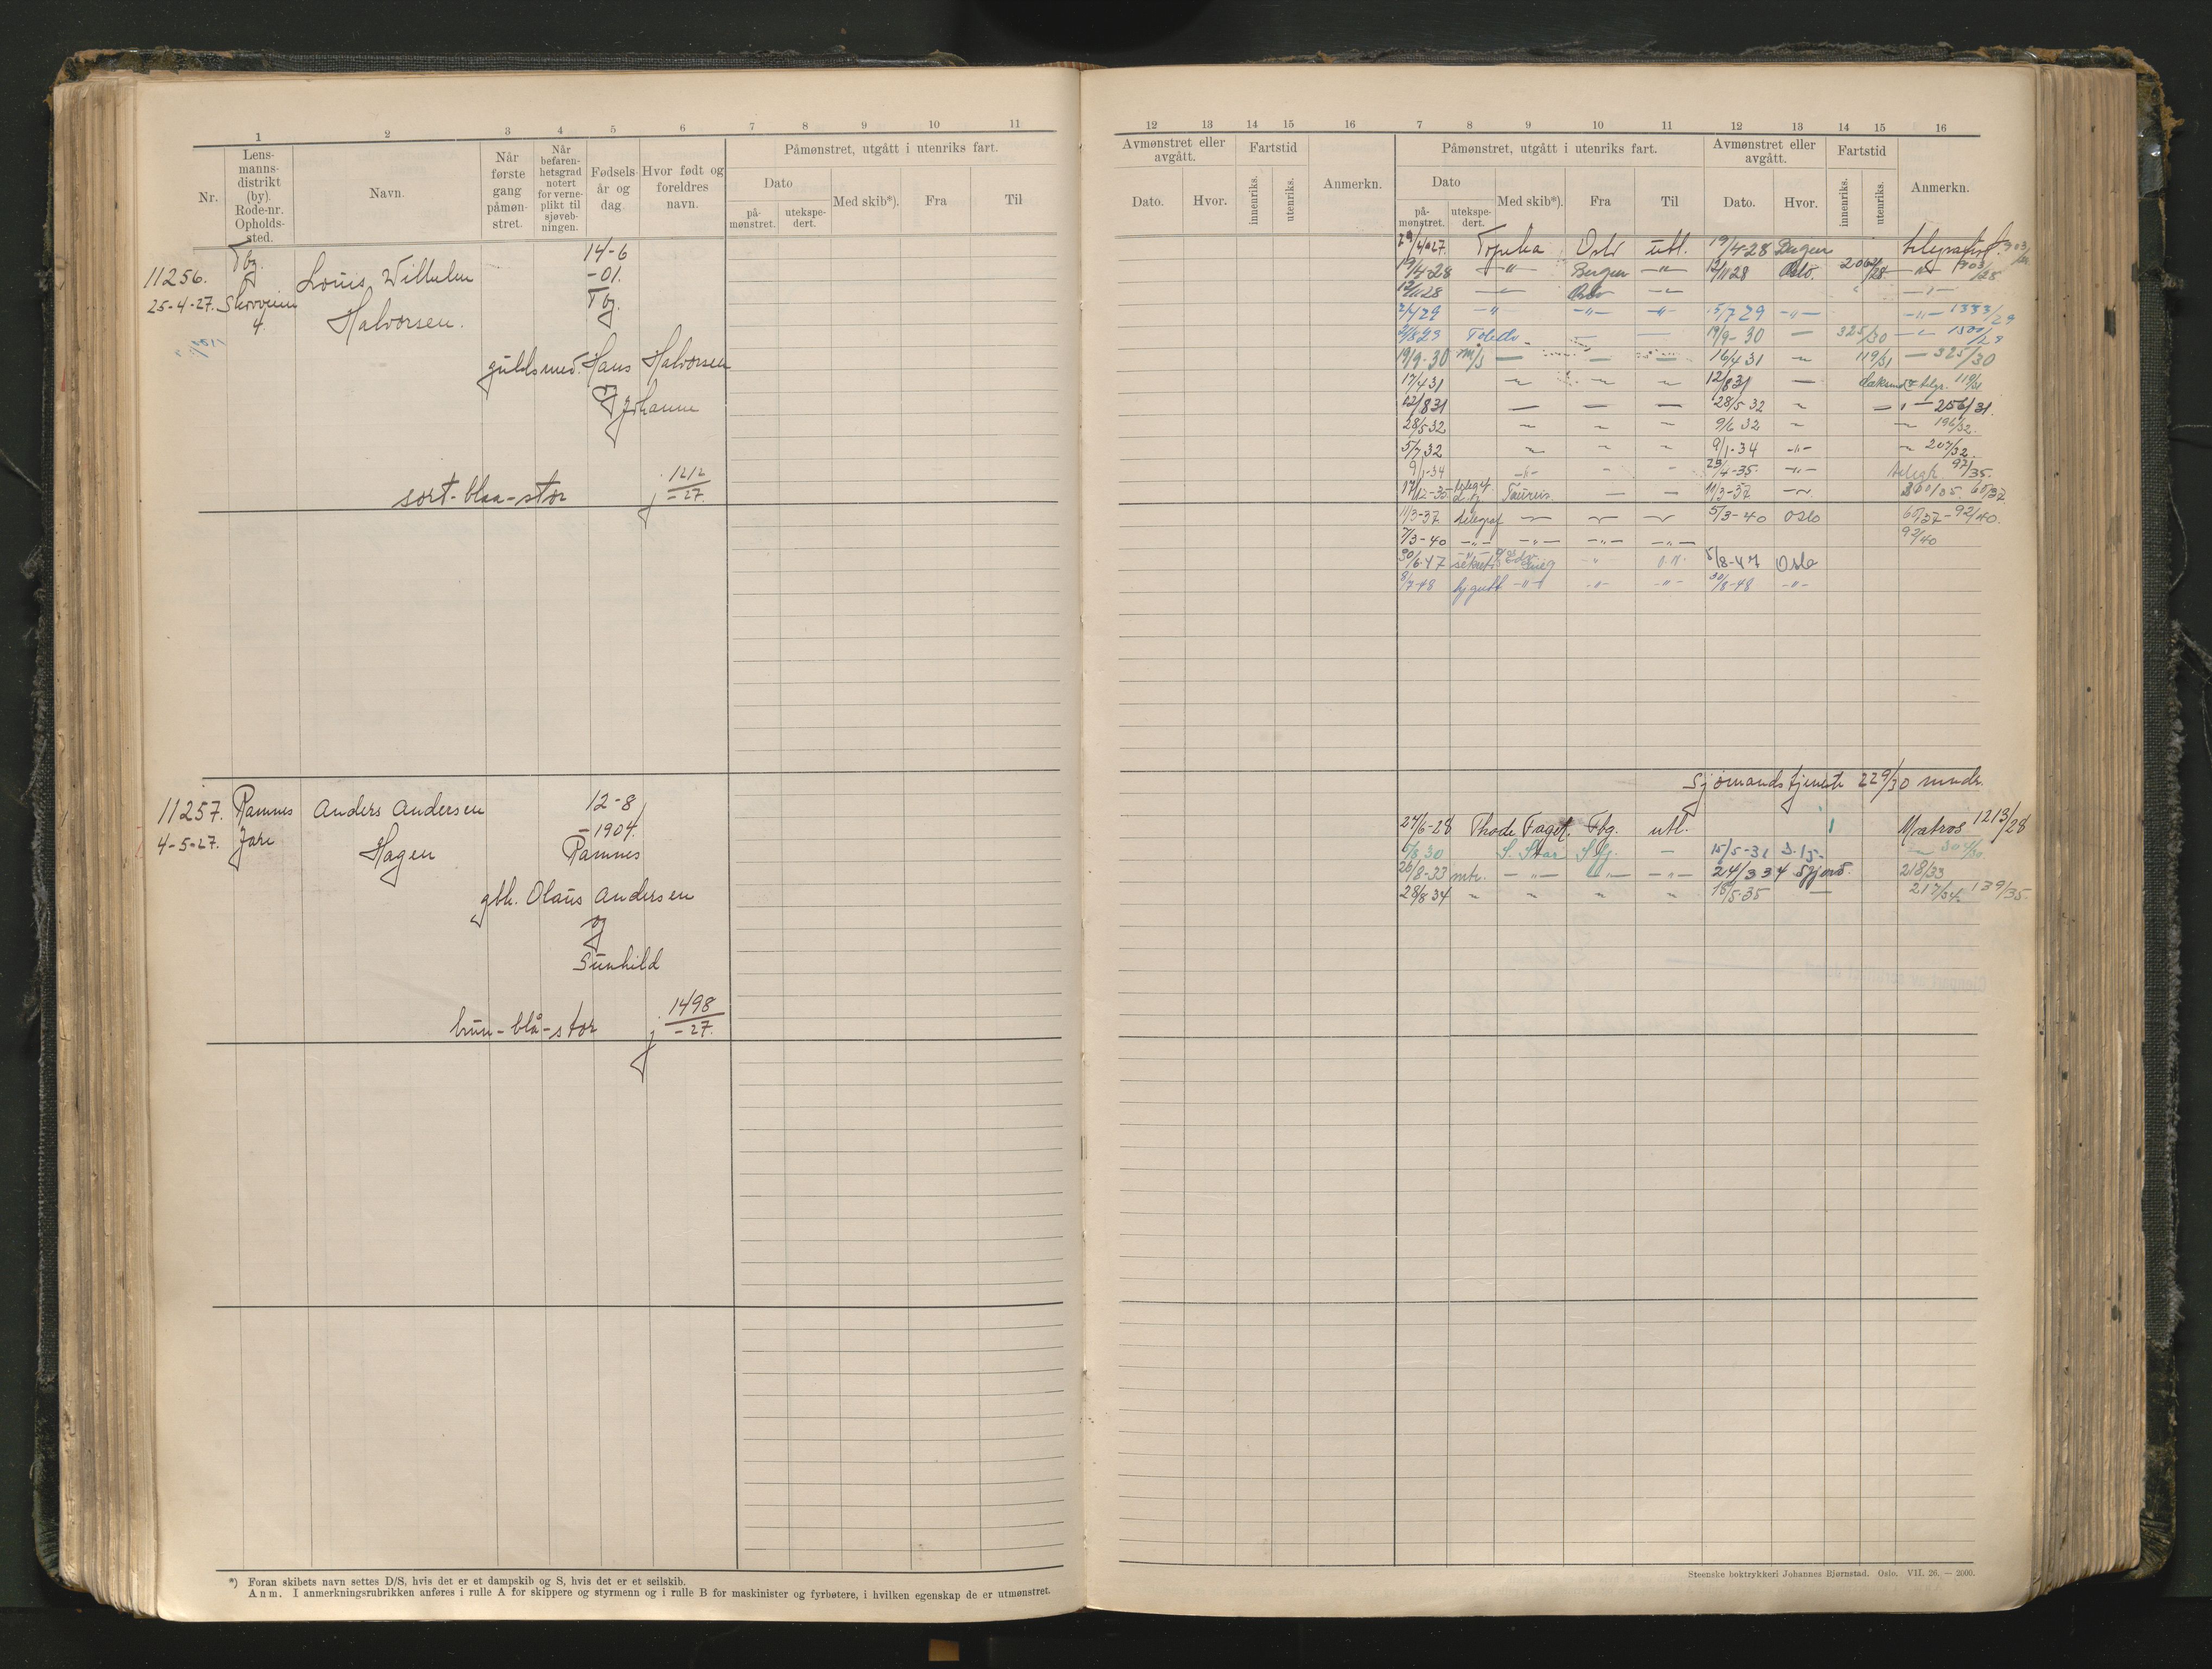 1 2 3 4 5 6 7 8 9 10 11
Nr.
Lens-
manns-
distrikt
(by).
Rode-nr.
Opholds-
sted.
Navn.
Når
første
gang
påmøn-
stret.
Når
befaren-
hetsgrad
notert
for verne-
plikt til
sjøveb-
ningen.
Fødsels-
år og
dag.
Hvor født og
foreldres
navn.
Påmønstret, utgått i utenriks fart.
Dato
på-
mønstret.
utekspe-
dert.
Med skib*).
Fra
Til
11256. Tbg. Louis Wilhelm 14-6
-01.
25-4-27. 4. Halvorsen. Tbg.
guldsmed. Hans Halvorsen
og
Johanne
sort-blaa-stor j. 1212/-27.
11257. Ramnes Anders Andersen 12-8
-1904.
4-5-27. Jare Hagen Ramnes
gbr. Olaus Andersen
og
Gunhild
brun-blå-stor j. 1498/-27.
*) Foran skibets navn settes D/S, hvis det er et dampskib og S, hvis det er et seilskib.
Anm. I anmerkningsrubrikken anføres i rulle A for skippere og styrmenn og i rulle B for maskinister og fyrbøtere, i hvilken egenskap de er utmønstret.
12 13 14 15 16 7 8 9 10 11 12 13 14 15 16
Avmønstret eller
avgått.
Dato.
Hvor.
Fartstid
innenriks.
utenriks.
Anmerkn.
Påmønstret, utgått i utenriks fart.
Dato
på-
mønstret.
utekspe-
dert.
Med skib*).
Fra
Til
Avmønstret eller
avgått.
Dato.
Hvor.
Fartstid
innenriks.
utenriks.
Anmerkn.
29/4-27. Topeka Oslo utl. 19/4-28 Bergen
19/4-28 -"- Bergen -"- 12/11 28 Oslo.
12/11 28 — Oslo —
2/4 29 -"- -"- -"- 15/7 29 -"- -"- 1333/29
Toledo — — 19/9-30 — 325/30
19/9-30 M/S — — — 16/4 31 — 119/31 — 325/30
17/4 31 — — — 12/8 31 — telgr. 119/31
12/8 31 — — — 28/5 32 — -"- 256/31.
28/5 32 — — — 9/6 32 — — 196/32.
5/7 32 — — — 9/1-34 -"- — 207/32.
9/1-34 -"- - - 23/4-35 -"- telegr. 97/35.
17/12-35 Taurus. — — 11/3-37 — 360/35. 60/37
11/3-37 telegraf — — — 5/3-40 Oslo 60/37-92/40.
7/3-40 -"- -"- -"- -"- 92/40
30/6-47 -"- 5/8-47 Oslo
8/7-48 -"- -"- -"- 30/8-48 -"-
Sjømandstjeneste 229/30 mndr.
27/6-28 Thode Fagel. Tbg. utl. Matros 1213/28
5/8 30 S. Star — 15/5-31
26/8-33 mtr. -"- -"- -"- 24/3 34 218/33
28/8 34 " " " " 18/5-35 — 217/34. 139/35.
Steenske boktrykkeri Johannes Bjørnstad. Oslo. VII. 26. — 2000.